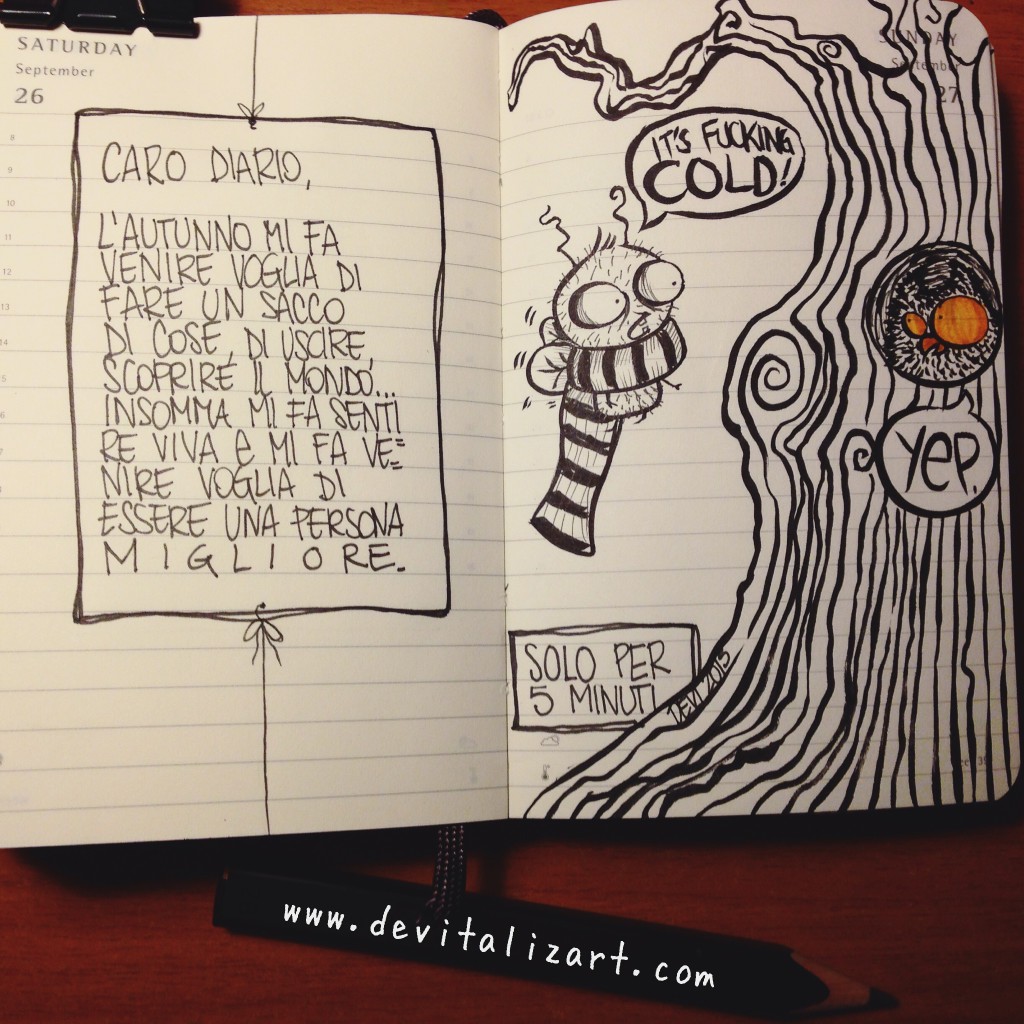 SATURDAY
September
26
8
9
10
11
12
13
14
CARO DIARIO,
L'AUTUNNO MI FA
VENIRE VOGLIA DI
FARE UN SACCO
DI COSE, DI USCIRE,
SCOPRIRE IL MONDO...
INSOMMA MI FA SENTI
RE VIVA E MI FA VE=
NIRE VOGLIA DI
ESSERE UNA PERSONA
MIGLIORE.
SUNDAY
September
27
IT'S FUCKING
COLD!
YEP.
SOLO PER
5 MINUTI
DEVI 2015
www.devitalizart.com